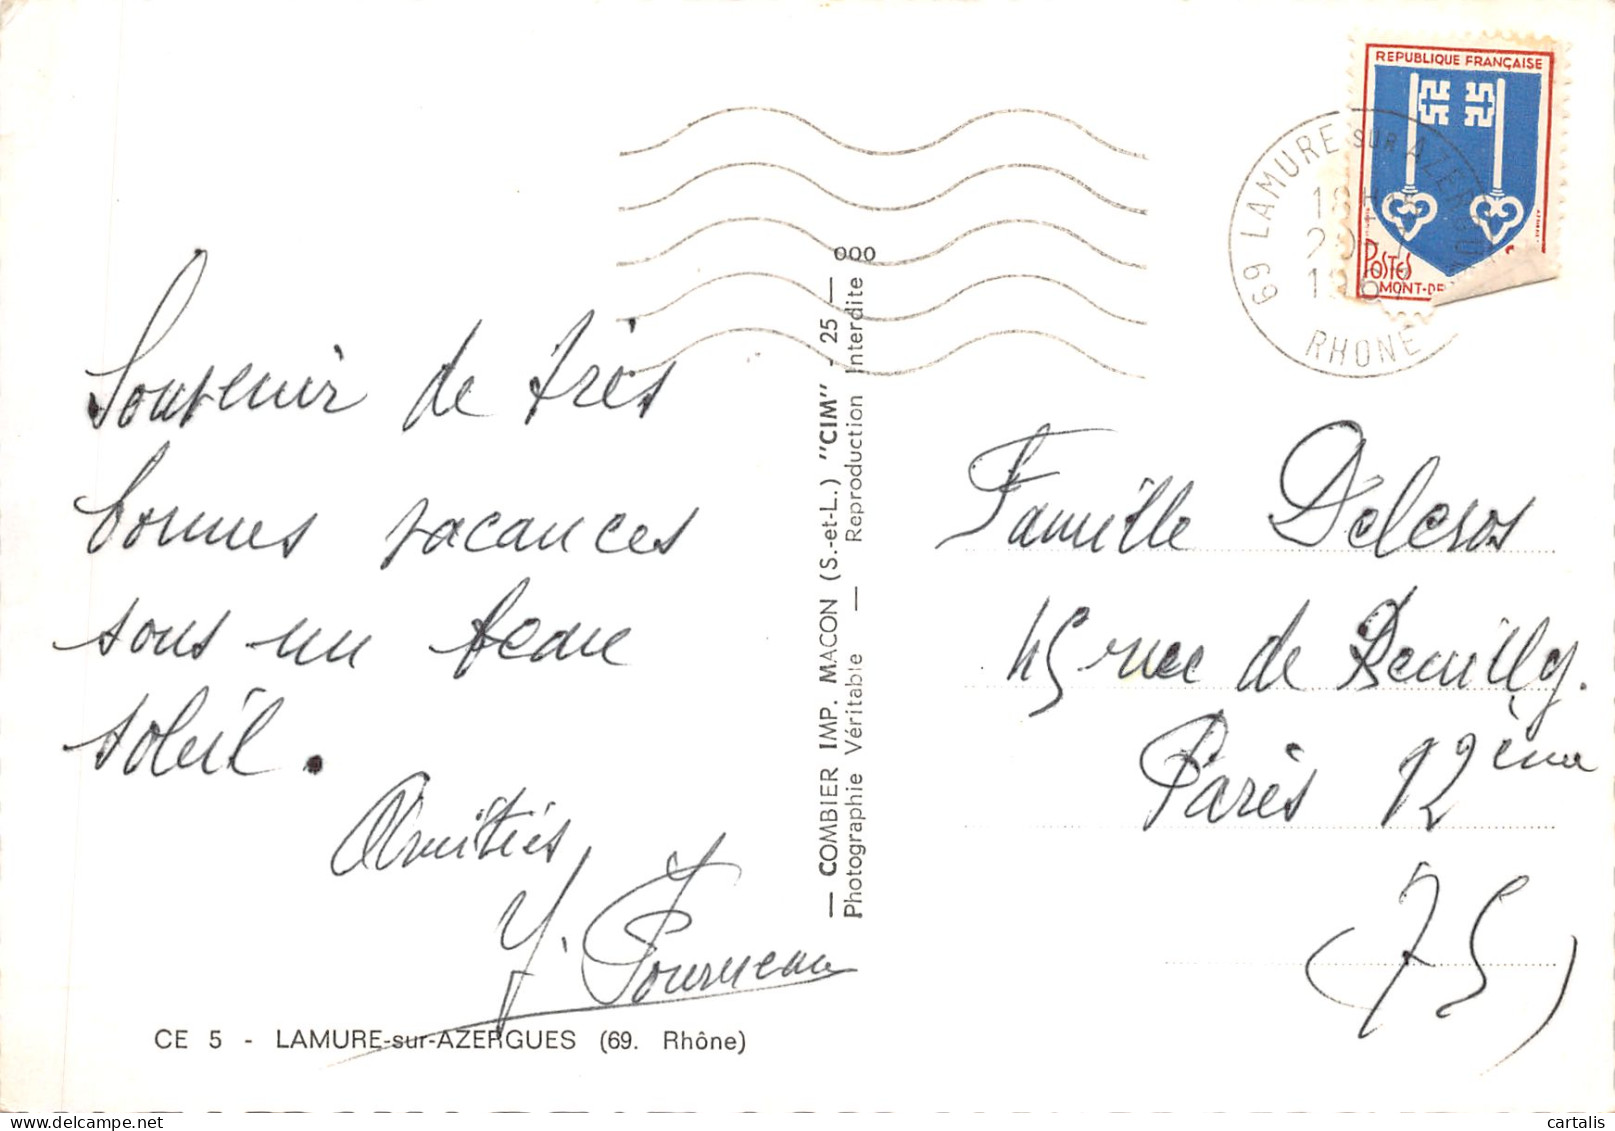 Souvenir de très
bonnes vacances
sous un beau
soleil.
Amitiés
Y. Fourneau
CE 5 - LAMURE-sur-AZERGUES (69. Rhône)
— COMBIER IMP. MACON (S.-et-L.) "CIM" - 25 —
Photographie Véritable — Reproduction Interdite
000
REPUBLIQUE FRANÇAISE
POSTES
MONT-DE
69 LAMURE SUR AZERGUES
18H
RHONE
Famille Delcros
45 rue de Reuilly.
Paris 12ème
(75)
cartalis